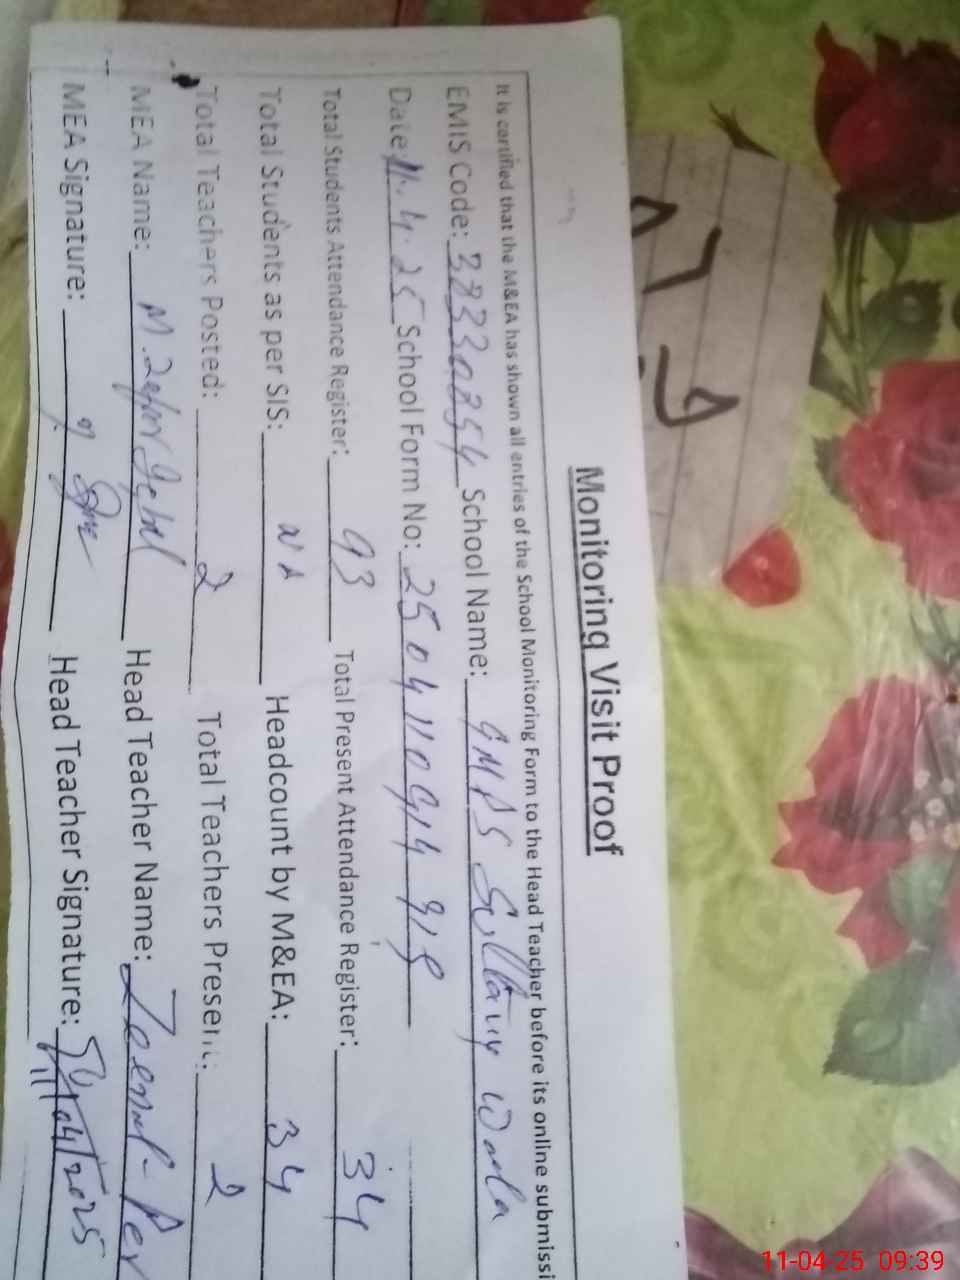 Monitoring Visit Proof
It is certified that the M&EA has shown all entries of the School Monitoring Form to the Head Teacher before its online submissi
EMIS Code: School Name: GMPS Wala
Date 11.4.25 School Form No:
Total Students Attendance Register: 93 Total Present Attendance Register: 34
Total Students as per SIS: NA Headcount by M&EA: 34
Total Teachers Posted: 2 Total Teachers Present: 2
MEA Name: M. Zafar Iqbal Head Teacher Name:
MEA Signature: Head Teacher Signature:
11/04/2025
11-04-25 09:39